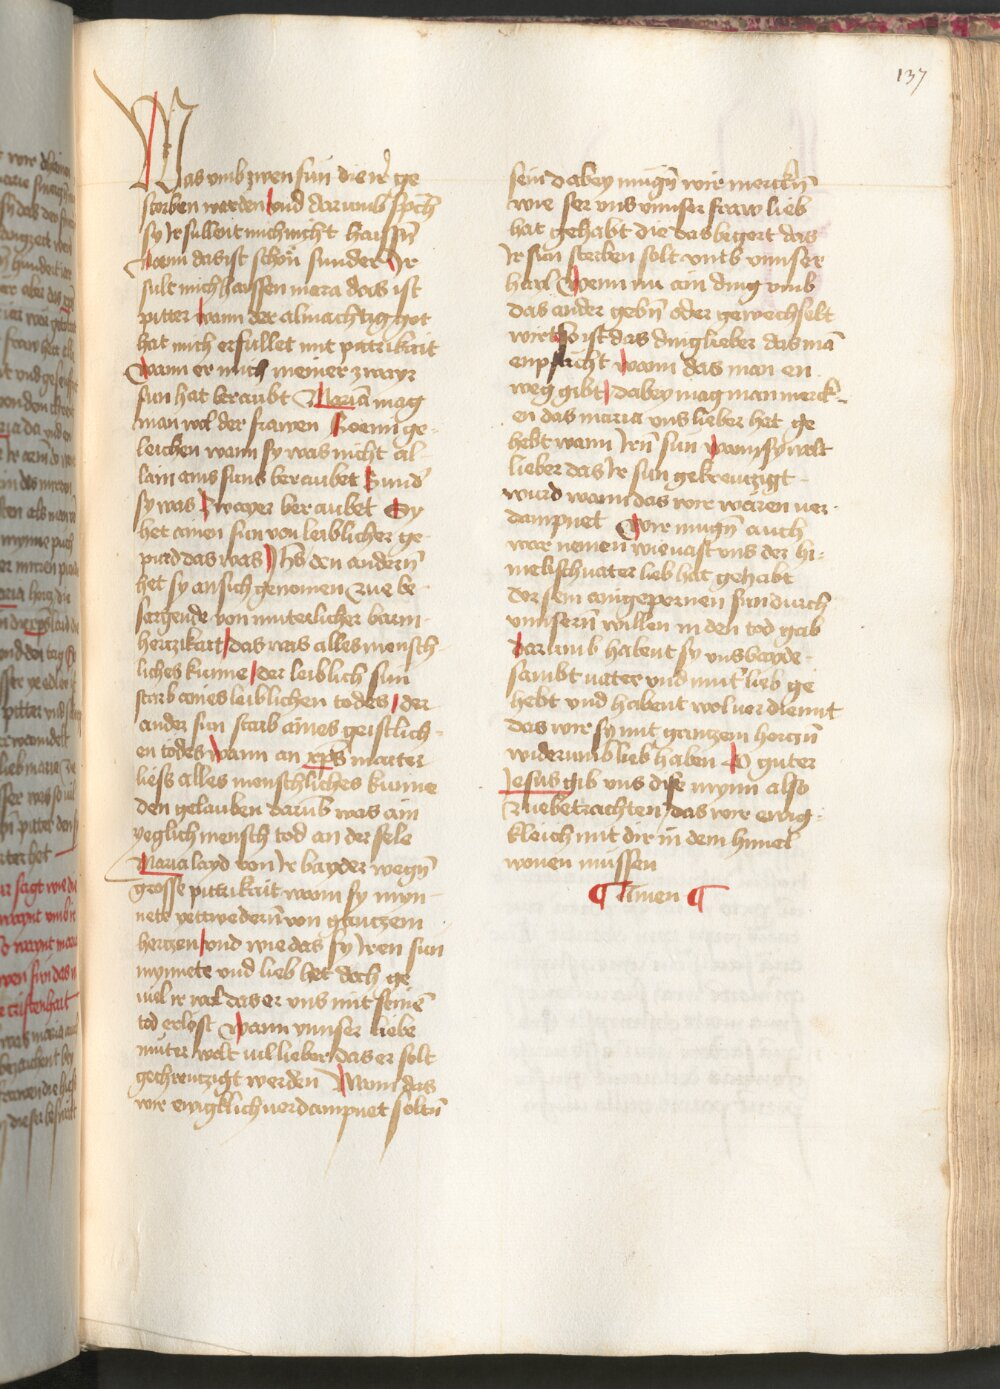 137
Was umb zwen sün die ir ge
storben warden und darumb sprch
sy Ir sullent mich nicht haissñ
Noemi das ist schön sunder Ir
sult mich haissen mara das ist
pitter wann der almächtig got
hat mich erfüllet mit pittrikait
wann er mich meiner zwayr
sun hat beraubt Maria mag
man wol der frawen Noemi ge-
leichen wann sy was nicht al-
lain ains suns beraubet Sund̄
sy was zwayer beraubet Sy
het ainen sun von leiblicher ge-
purd das was Jhs den andern̄
het sy an sich genomen zue be-
sargende von muterlicher barm-
hertzikait das was alles mensch-
liches kunne der leiblich sun
starb aines leiblichen todes der
ander sun starb aines geistlich-
en todes wann an xp̄s marter
liess alles menschliches kunne
den gelauben darūb was ain
yeglich mensch tod an der sele
Maria layd von Ir bayder wegñ
grosse pittrikait wann sy myn-
nete yettwedern̄ von gantzem
hertzen und wie das sy Iren sun
mynnete und lieb het doch ge
uiel ir wol das er uns mit seinē
tod erlost wann unnser liebe
muter wolt uil lieber das er solt
gechreutzigt werden Wann das
wir ewigklich uerdampnet soltñ
sein dabey mügñ wir merckñ
wie ser uns unnser fraw lieb
hat gehabt die das begert das
Ir sun sterben solt umb unnser
hail Wenn nu ain ding umb
das ander gebñ oder gewechselt
wirt so ist das ding lieber das mā
enpfacht wann das man en
weg gibt dabey mag man merck-
en das maria uns lieber het ge
hebt wann Irn̄ sun wann sy wolt
lieber das Ir sun gekreutzigt
wurd wann das wir wären uer-
dampnet Wir mugñ auch
war nemen wie uast uns der hi-
melisch uater lieb hat gehabt
der sein aingepornen sun durch
unnsern̄ willen in den tod gab
darumb habent sy uns bayde
sambt uater und mut̄ lieb ge
hebt und habent wol uerdiennt
das wir sy mit gantzem hertzñ
widerumb lieb haben O guter
Jesus gib uns dise mynn also
zue betrachten das wir ewig-
kleich mit dir in dem himel
wonen mussen
Amen